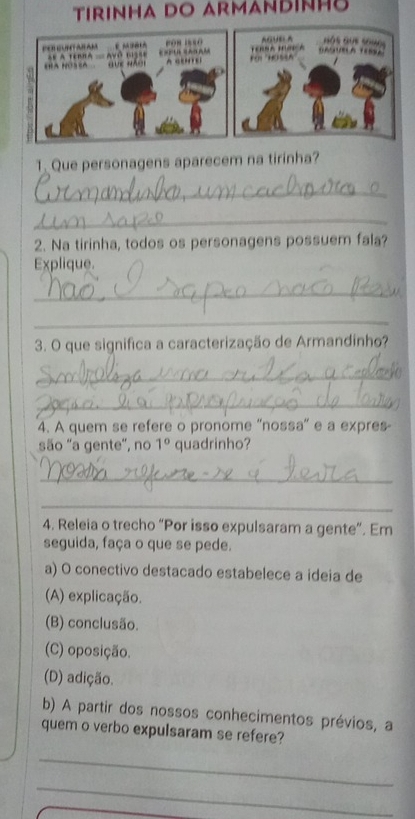 TIRINHA DO ARMANDINHO
PERGUNTARAM
SE A TERRA
ERA NOSSA...
... E MINHA
AVÓ DISSE
QUE NÃO!
POR ISSO
EXPULSARAM
A GENTE!
AQUELA
TERRA NUNCA
FOI "NOSSA"
NÓS QUE SOMOS
DAQUELA TERRA!
1. Que personagens aparecem na tirinha?
Armandinho, um cachorro e
um sapo
2. Na tirinha, todos os personagens possuem fala?
Explique.
não, O sapo não
3. O que significa a caracterização de Armandinho?
Simboliza uma critica a
a apropriação de
4. A quem se refere o pronome "nossa" e a expres-
são "a gente", no 1º quadrinho?
nossa refere-se á terra
4. Releia o trecho "Por isso expulsaram a gente". Em
seguida, faça o que se pede.
a) O conectivo destacado estabelece a ideia de
(A) explicação.
(B) conclusão.
(C) oposição.
(D) adição.
b) A partir dos nossos conhecimentos prévios, a
quem o verbo expulsaram se refere?